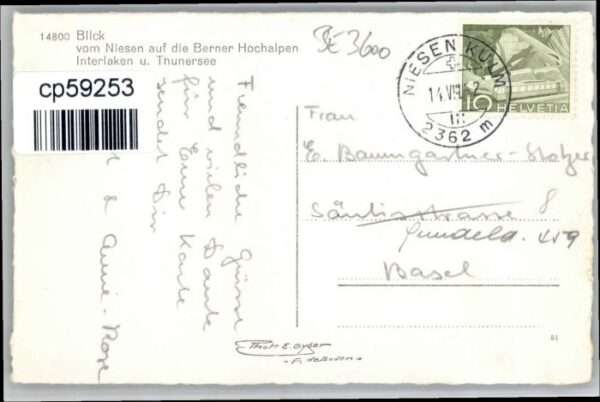 14800 Blick
vom Niesen auf die Berner Hochalpen
Interlaken u. Thunersee
BE 3600
cp59253
NIESEN KULM
14. VIII.
2362 m
10 HELVETIA
Freundliche Grüsse
und vielen Dank
für Eure Karte
sendet Dir
& Anne-Rose
Frau
E. Baumgartner-Stolzer
Säntisstrasse 8
Gundeld. 459
Basel
Phot. E. Gyger
61